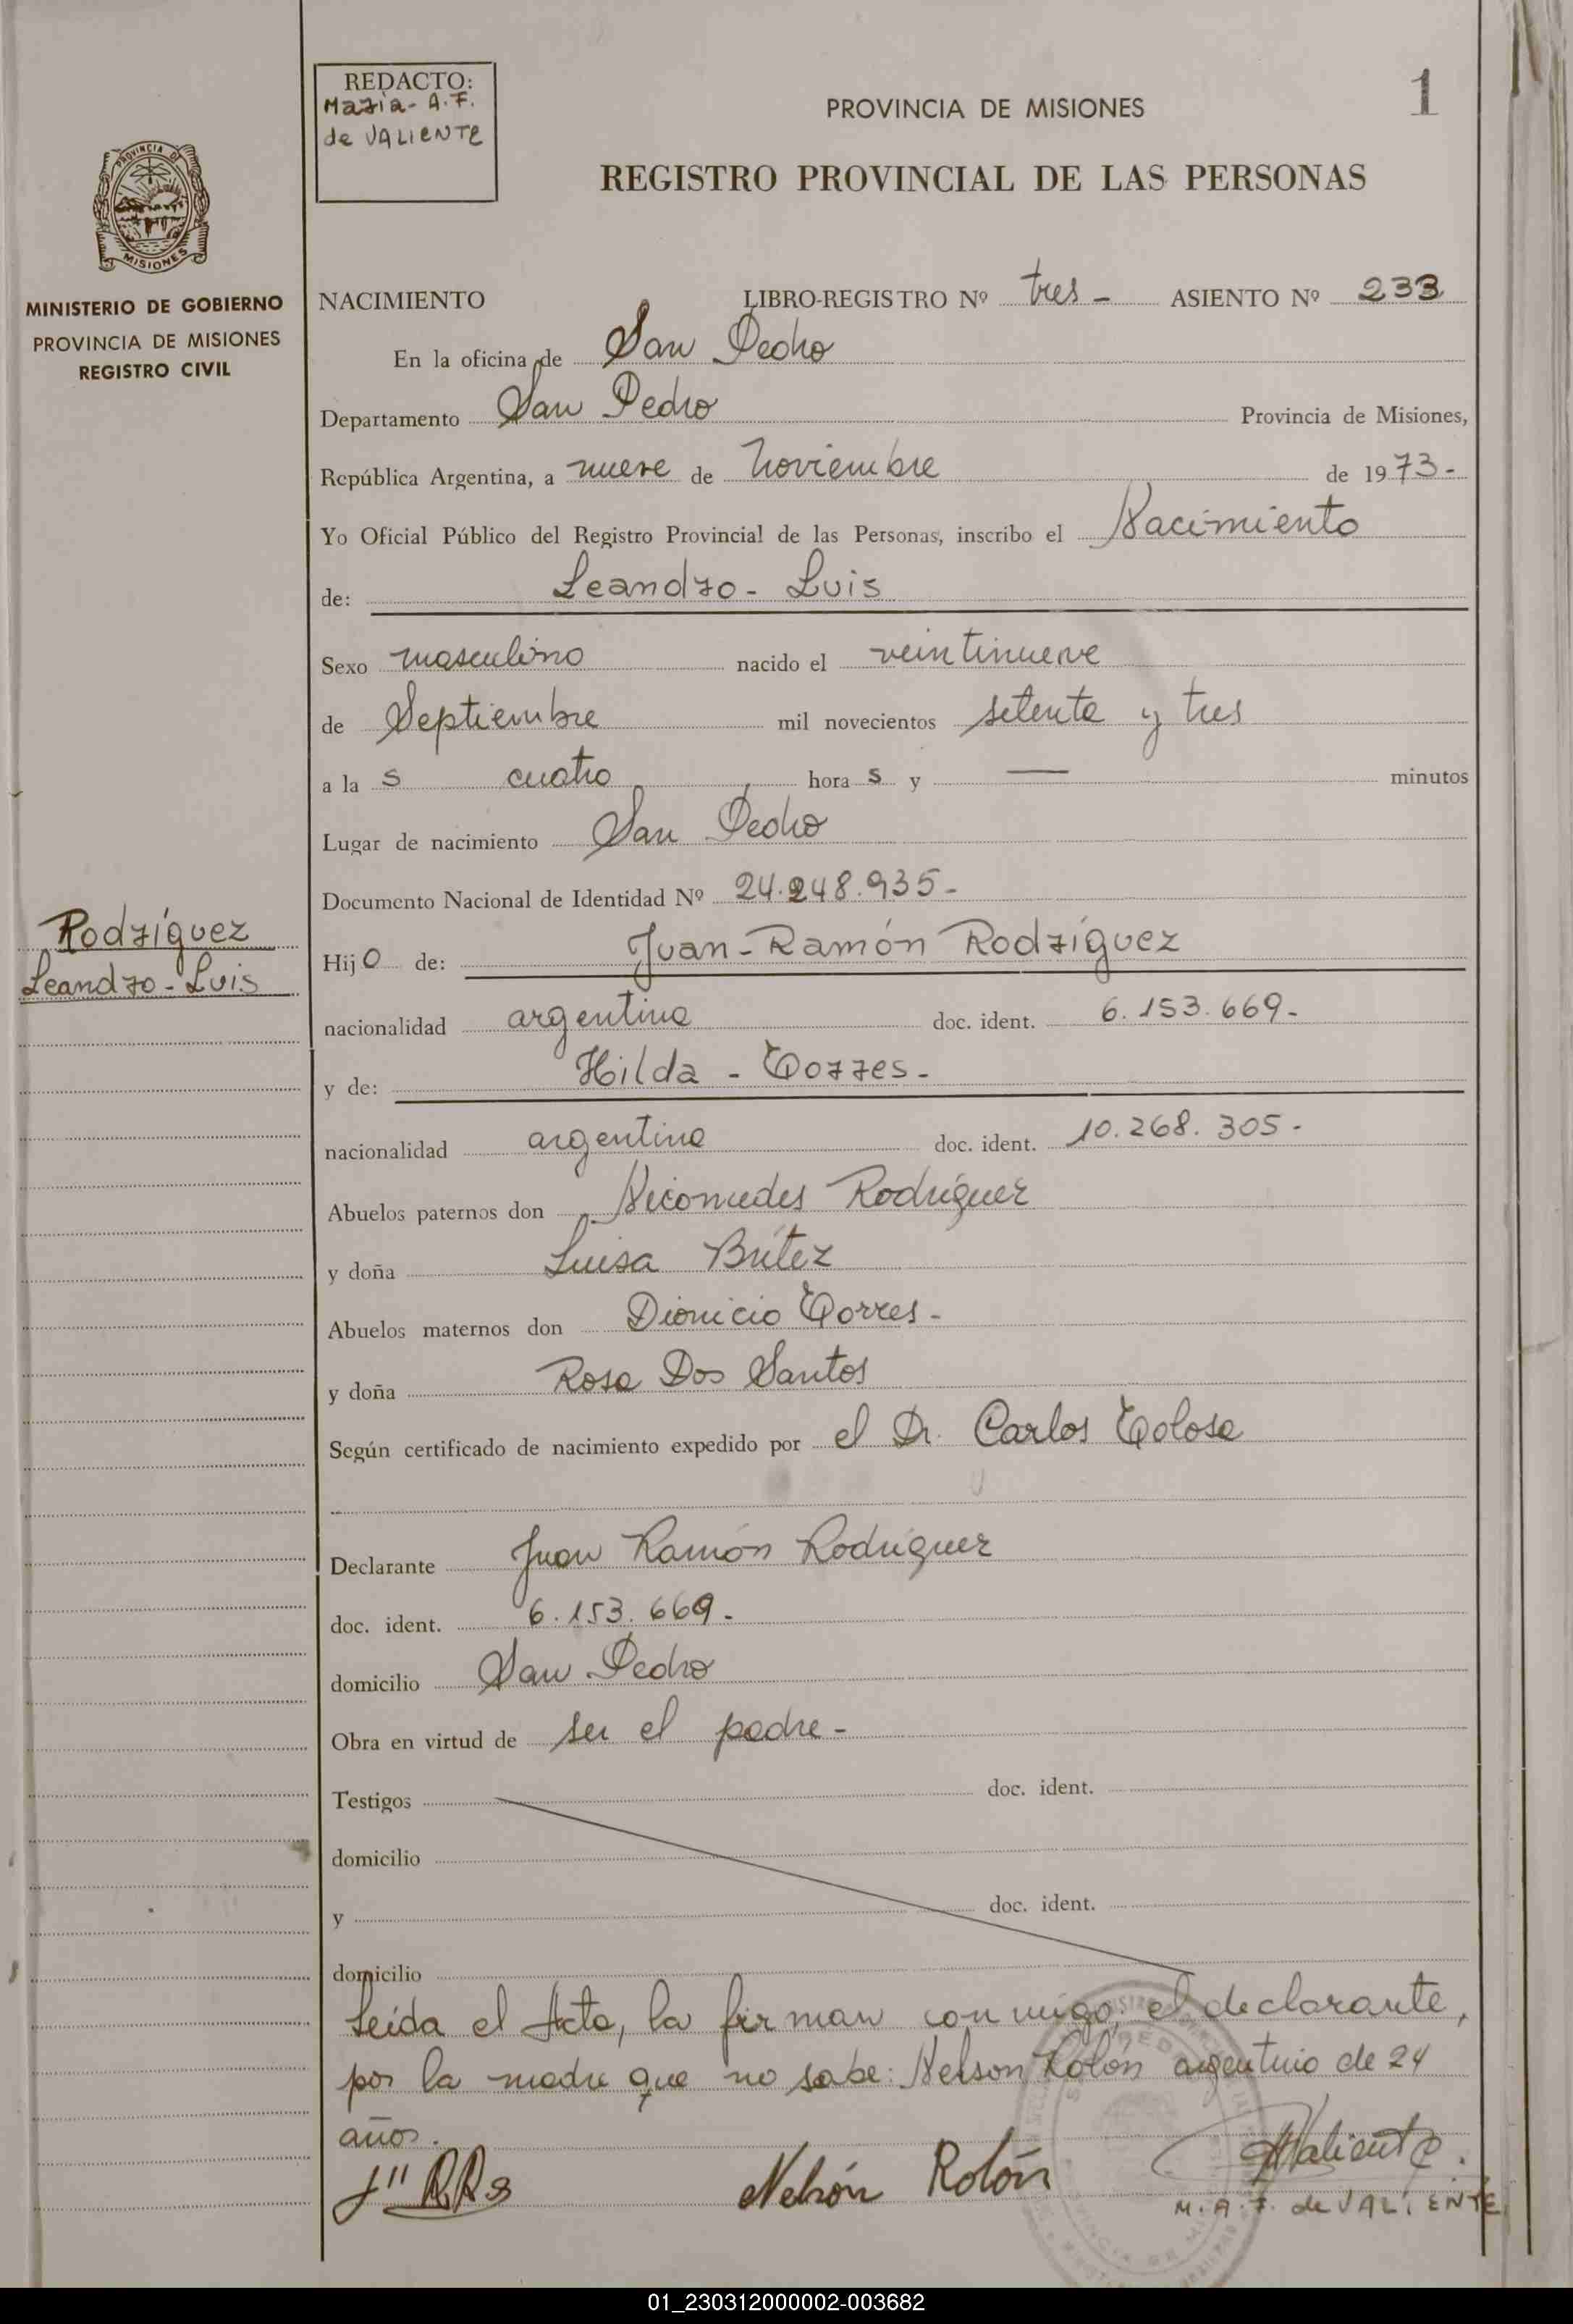 REDACTO:
María - A. F.
de VALIENTE
PROVINCIA DE MISIONES
1
REGISTRO PROVINCIAL DE LAS PERSONAS
PROVINCIA DE
MISIONES
MINISTERIO DE GOBIERNO
PROVINCIA DE MISIONES
REGISTRO CIVIL
NACIMIENTO LIBRO-REGISTRO Nº tres - ASIENTO Nº 233
En la oficina de San Pedro
Departamento San Pedro Provincia de Misiones,
República Argentina, a nueve de Noviembre de 1973-
Yo Oficial Público del Registro Provincial de las Personas, inscribo el Nacimiento
de: Leandro - Luis
Sexo masculino nacido el veintinueve
de Septiembre mil novecientos setenta y tres
a la s cuatro hora s y — minutos
Lugar de nacimiento San Pedro
Documento Nacional de Identidad Nº 24.248.935-
Rodríguez
Leandro - Luis
Hijo de: Juan - Ramón Rodríguez
nacionalidad argentina doc. ident. 6.153.669-
y de: Hilda - Torres -
nacionalidad argentina doc. ident. 10.268.305-
Abuelos paternos don Nicomedes Rodríguez
y doña Luisa Brítez
Abuelos maternos don Dionicio Torres -
y doña Rosa Dos Santos
Según certificado de nacimiento expedido por el Dr. Carlos Tolosa
Declarante Juan Ramón Rodríguez
doc. ident. 6.153.669-
domicilio San Pedro
Obra en virtud de ser el padre -
Testigos doc. ident.
domicilio
y doc. ident.
domicilio
Leída el Acta, la firman conmigo; el declarante,
por la madre que no sabe: Nelson Rolón argentino de 24
años.
Nelsón Rolón Valiente.
M. A. F. de VALIENTE
01_230312000002-003682